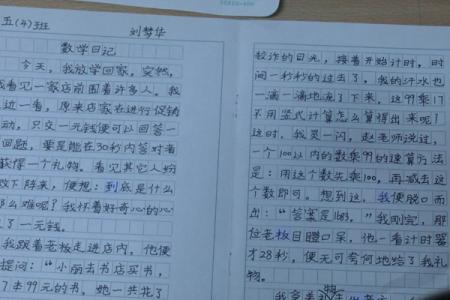 五(4)班 刘梦华
数学日记
今天，我放学回家，突然，
我看见一家店前围着许多人。我
走近一看，原来店家在进行促销
动，只交一元钱便可以回答一
回题，要是能在30秒内答对者
获得一个礼物。看见其它人纷
败下阵来，便想：到底是什么
么难呢？我怀着好奇心的心
了一元钱。
我跟着老板走进店内。他便
提问：“小丽去书店买书，
17本99元的书。她一共花了
狡诈的目光，接着开始计时，时
间一秒秒的过去了，我的汗水也
一滴一滴地流了下来，这99乘17
不用竖式计算怎么算得出来呢？
这时，我灵一闪，赵老师说过，
一个100以内的数乘99的速算方法
是：用这个数先乘100，再减去这
个数即可。想到这，我便脱口而
出：“答案是1683。”我刚完，那
位老板目瞪口呆，他一看计时器
才28秒，便无可奈何地给了我礼
物。